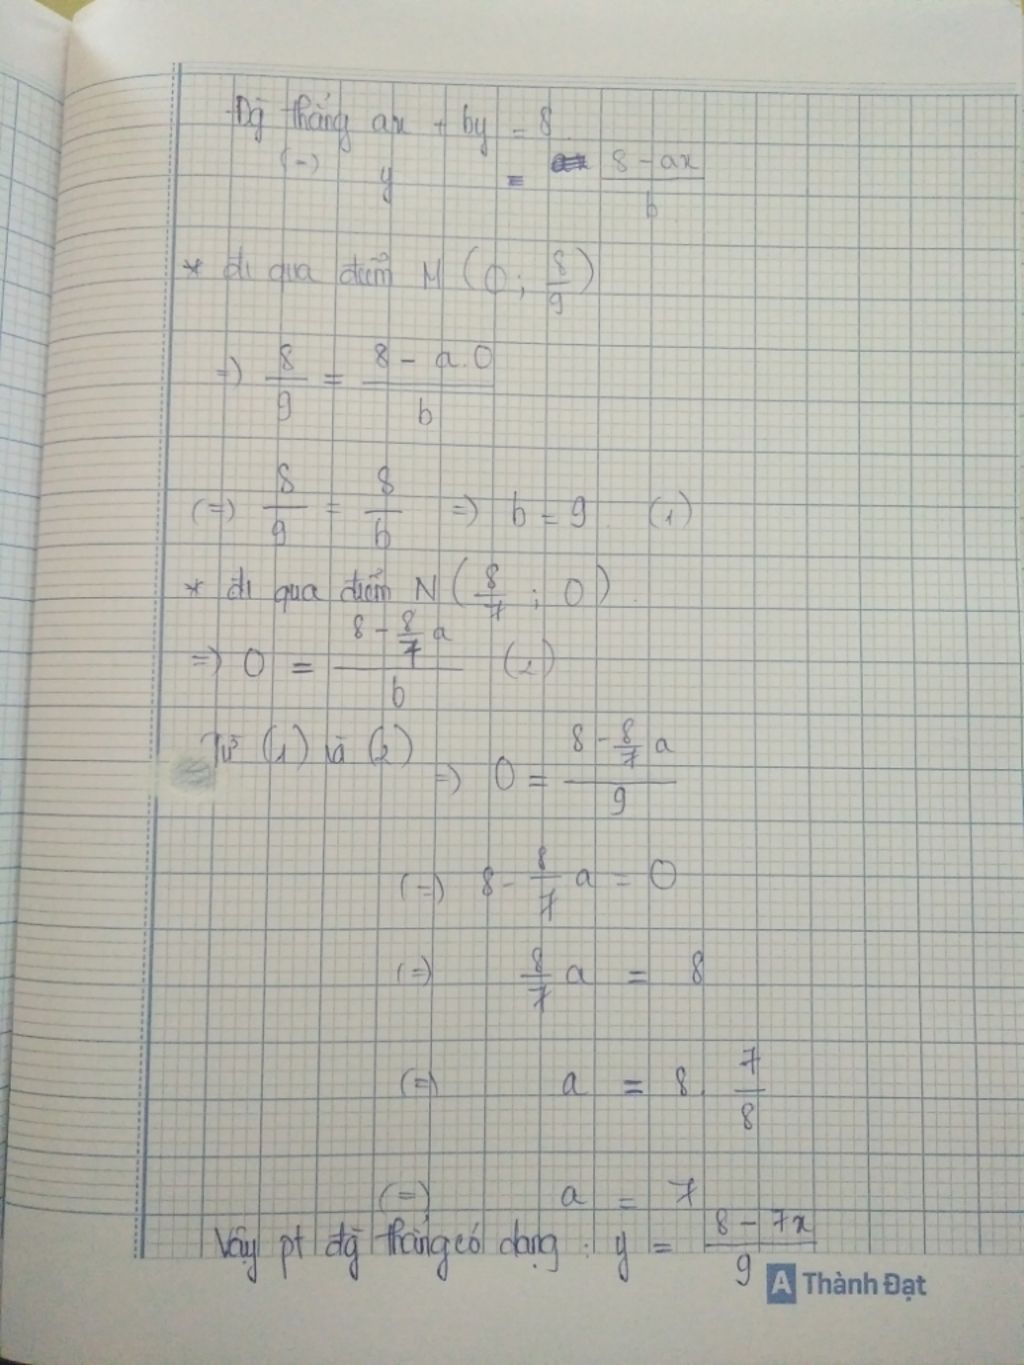 Đg thẳng ax + by = 8
(=) y = (8 - ax)/b
* đi qua điểm M (0; 8/9)
=) 8/9 = (8 - a.0)/b
(=) 8/9 = 8/b =) b = 9 (1)
* đi qua điểm N (8/7; 0)
=) 0 = (8 - 8/7 a)/b (2)
Từ (1) và (2) =) 0 = (8 - 8/7 a)/9
(=) 8 - 8/7 a = 0
(=) 8/7 a = 8
(=) a = 8. 7/8
(=) a = 7
Vậy pt đg thẳng có dạng: y = (8 - 7x)/9
A Thành Đạt